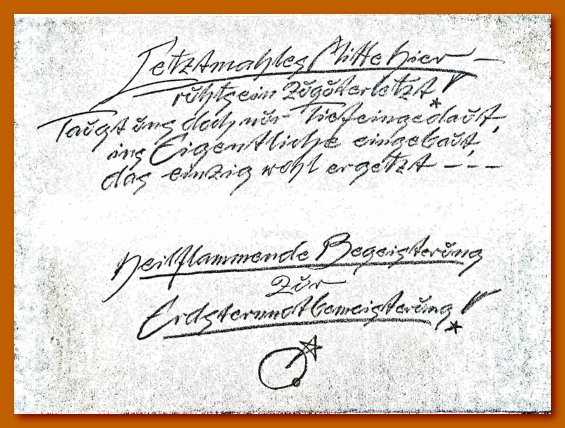 Letztmahles Mitte hier –
ruht's ein Zugöterletzt!
Taugt uns doch nur Tiefeingedaut,
ins Eigentliche eingebaut,
das einzig wohl ergetzt – – –
Heilflammende Begeisterung
zur
Erdsternotbemeisterung!